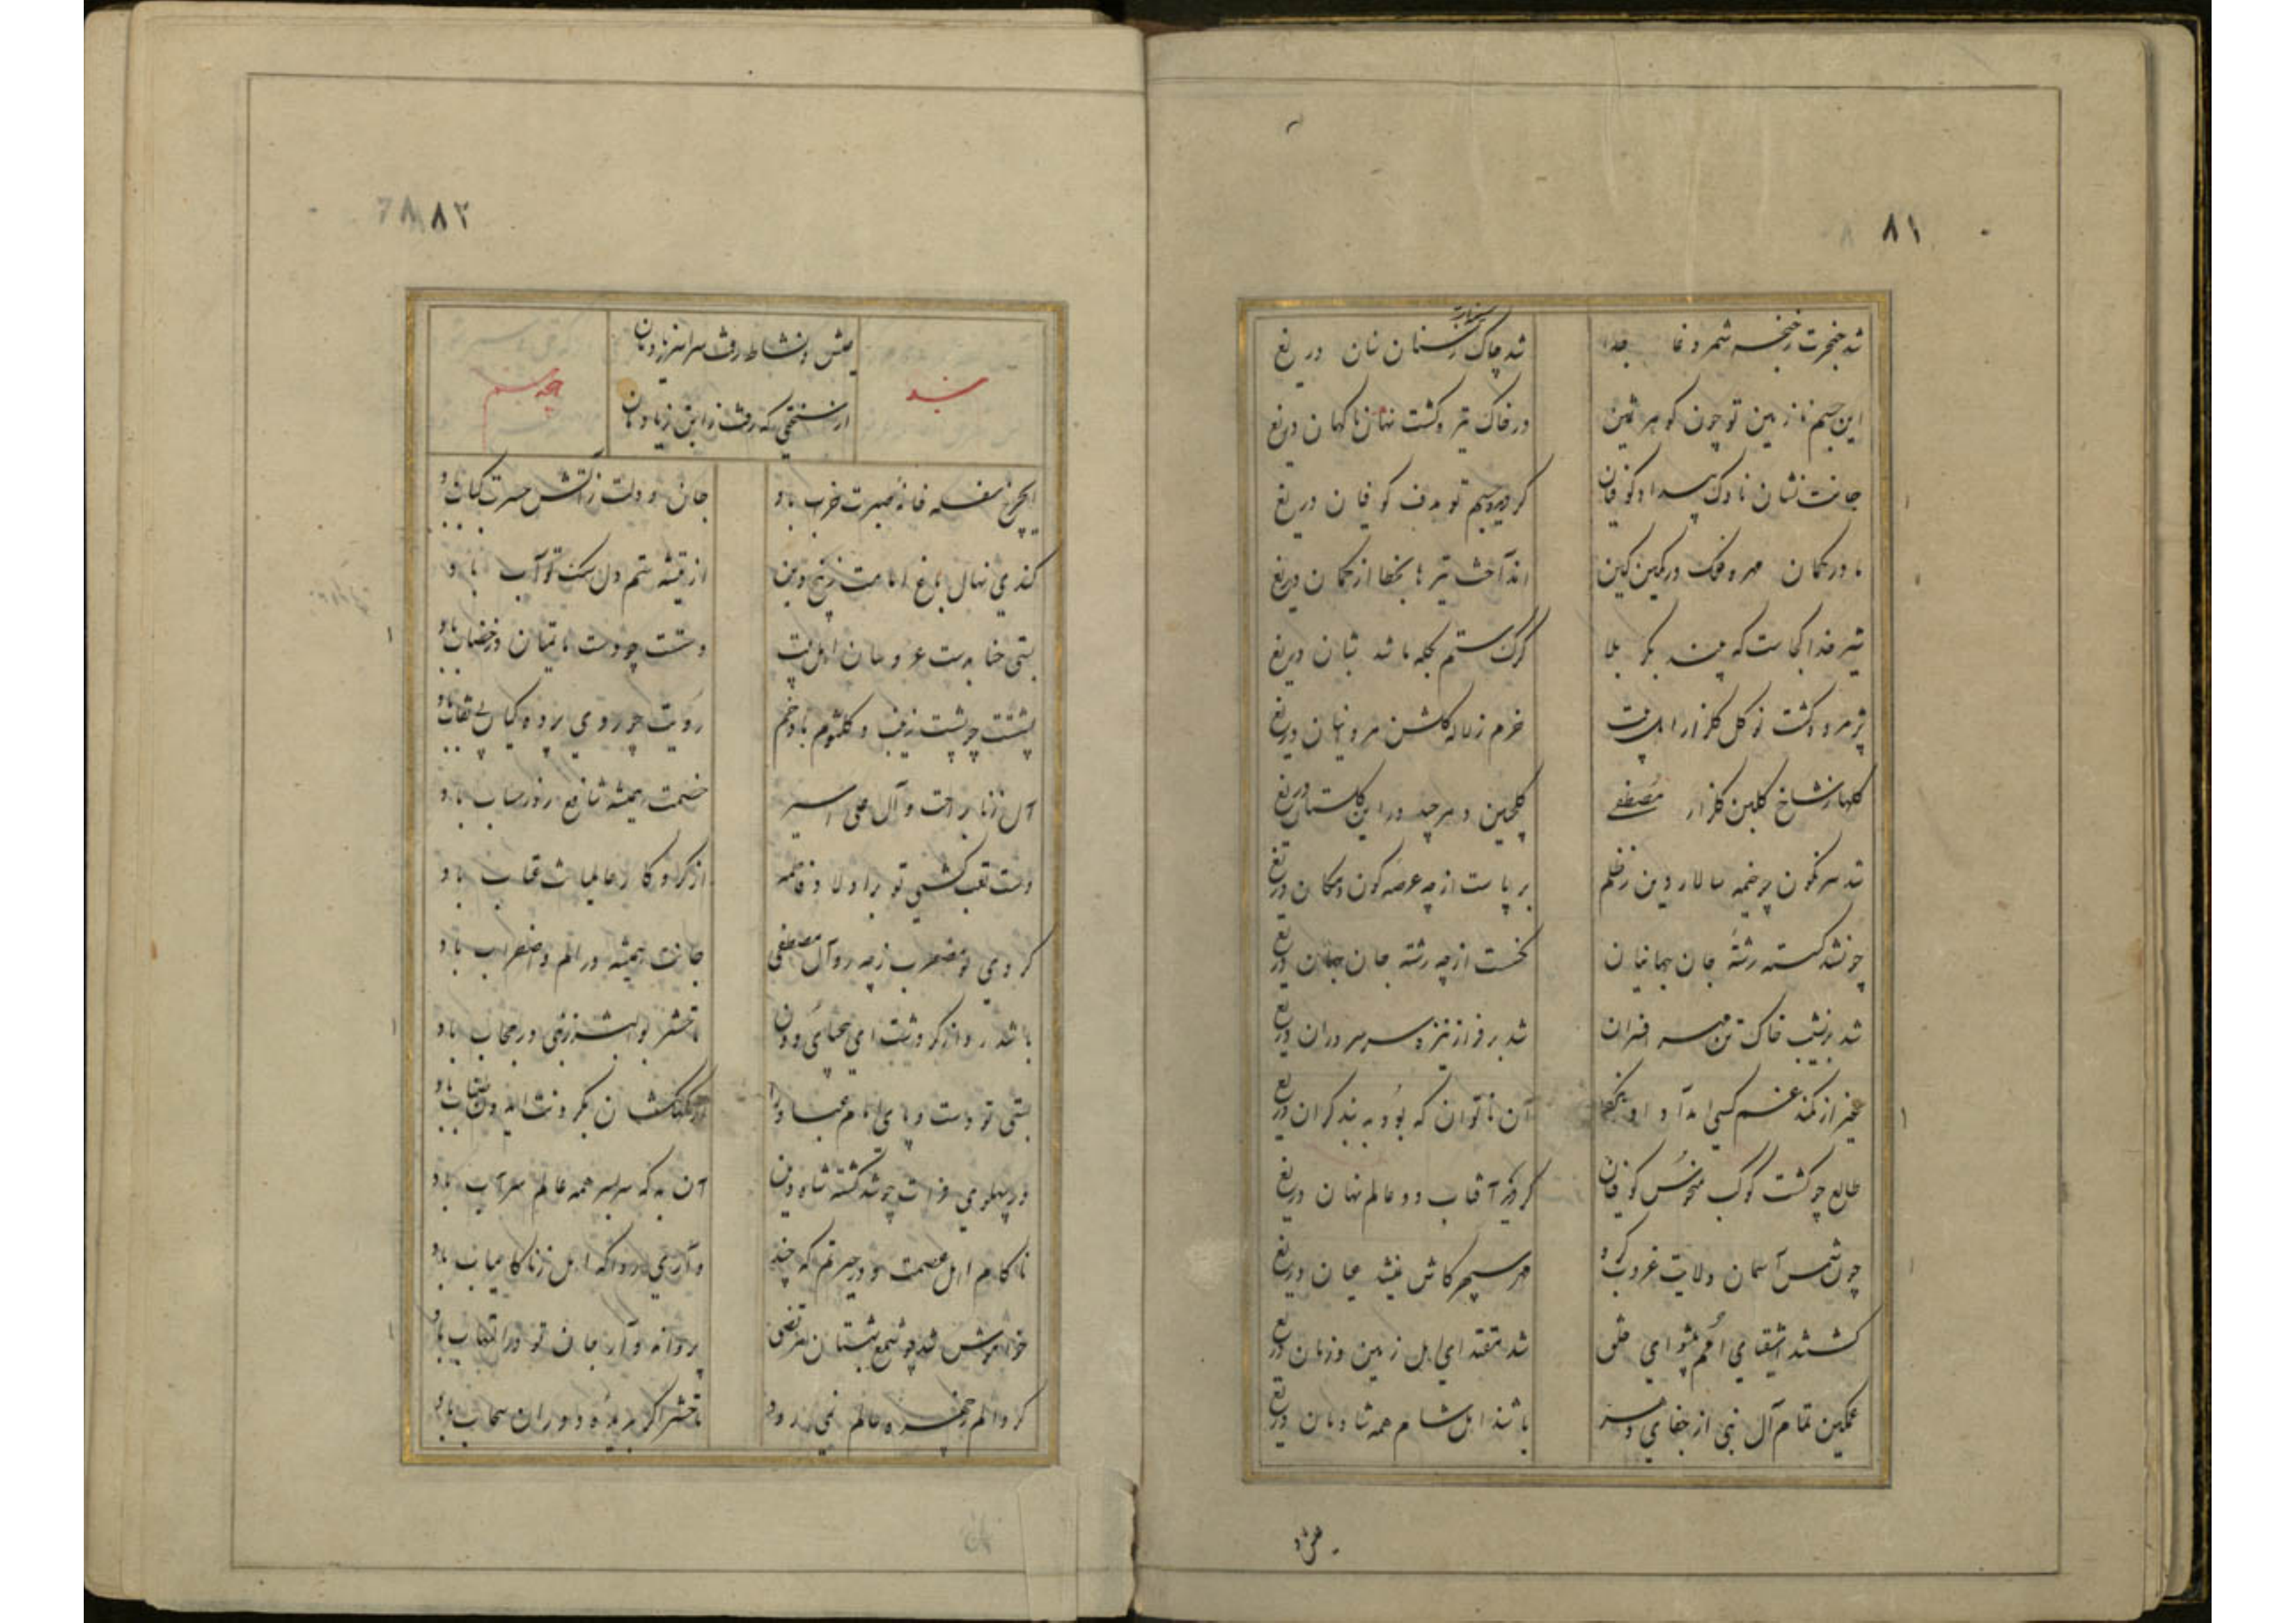 ۸۱
شد حنجرت ز خنجر شمر دغا جدا
شد چاک از سنان سنان دریغ
این جسم نازنین تو چون گوهر ثمین
در خاک تیره گشت نهان ناگهان دریغ
جانت نشان ناوک بیداد کوفیان
گردید جسم تو هدف کوفیان دریغ
در کمان مهر و فلک در کمین کین
انداخت تیر بخطا از کمان دریغ
شیر خدا کجاست که بیند بکربلا
گرگ ستم بگله باشد شبان دریغ
پژمرده گشت نو گل گلزار اهل بیت
خرم زمانه گلشن مروانیان دریغ
گلها ز شاخ گلبن گلزار مصطفی
گلچین دهر چید در این گلستان دریغ
شد سرنگون چو خیمه سالار دین ز ظلم
بر پاست از چه عرصه کون و مکان دریغ
چون شد گسسته رشته جان جهانیان
نگسست از چه رشته جان جهان دریغ
شد بر نشیب خاک تن مهر افسران
شد بر فراز نیزه سر سروران دریغ
غیر از کمند غم کسی امداد او نکرد
آن ناتوان که بود به بند گران دریغ
طالع چو گشت کوکب منحوس کوفیان
گردید آفتاب دو عالم نهان دریغ
چون شمس آسمان ولایت غروب کرد
مهر سپهر کاش نمیشد عیان دریغ
کشتند اشقیای امم پیشوای خلق
شد مقتدای اهل زمین و زمان دریغ
غمگین تمام آل نبی از جفای دهر
باشند اهل شام همه شادمان دریغ
۸۲
عیش و نشاط رفت سراسر ز یادمان
از ستمی که رفت ز ابن زیادمان
بند
ای چرخ سفله خانه صبرت خراب باد
جان و دلت ز آتش حسرت کباب باد
کندی نهال باغ امامت ز بیخ و بن
از تیشه ستم دل سنگ تو آب باد
بستی حنا بدست عروسان اهل بیت
دستت چو دست ماتمیان در خضاب باد
پشتت چو پشت زینب و کلثوم باد خم
رویت چو روی پرده گیان بی نقاب باد
آل زنا براحت و آل علی اسیر
خصمت همیشه شافع روز حساب باد
دست تعب گشتی تو بر اولاد فاطمه
از کردگار عالمیانت عقاب باد
کردی تو مضطرب ز چه رو آل مصطفی
جانت همیشه در الم و اضطراب باد
باشد روا ز کرده ات ای بیحیای دون
تا حشر بوالبشر ز نبی در حجاب باد
بستی تو دست و پای امام عباد را
در پهلوی فرات چو شد کشته شاه دین
آن به که سر بسر همه عالم سراب باد
ناکام اهل عصمت و در حیرتم که چند
داری روا که اهل زنا کامیاب باد
خواموش شد چو شمع شبستان مرتضی
پروانه وار جان تو در التهاب باد
تا حشر اگر بدیده دوران سحاب باد